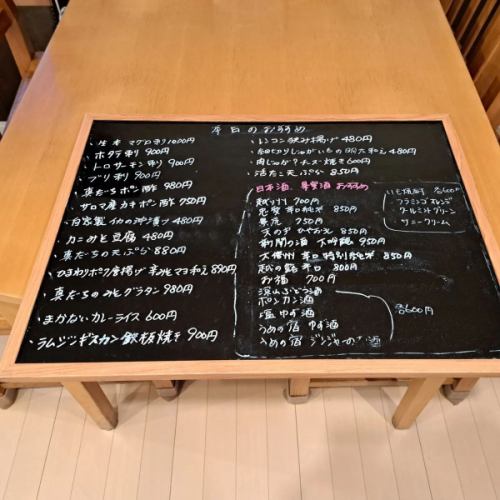 本日のおすすめ
・生本マグロ刺し1000円
・ホタテ刺し 900円
・トロサーモン刺し 900円
・ブリ刺し 900円
・真だちポン酢 980円
・サロマ産カキポン酢 750円
・自家製イカの沖漬け 480円
・カニみそ豆腐 480円
・真だちの天ぷら 880円
・ひまわりポーク唐揚げ 辛みマヨ和え 890円
・真だちのみそグラタン 980円
・まかないカレーライス 600円
・ラムジンギスカン鉄板焼き 900円
・レンコン挟み揚げ 480円
・細切りじゃがいもの 和え 480円
・肉じゃがチーズ焼き 600円
・活たこ天ぷら 850円
日本酒、果実酒 おすすめ
越 700円
辛口純米 850円
750円
天の戸 850円
前関の酒 大吟醸 950円
大信州 辛口特別純米 850円
越の 辛口 800円
お福 700円
深山ぶどう酒
ポンカン酒
塩ゆず酒
うめの宿 ゆず酒
うめの宿 ジンジャー酒
各600円
いも焼酎 各600円
フラミンゴオレンジ
クールミントグリーン
サニークリーム